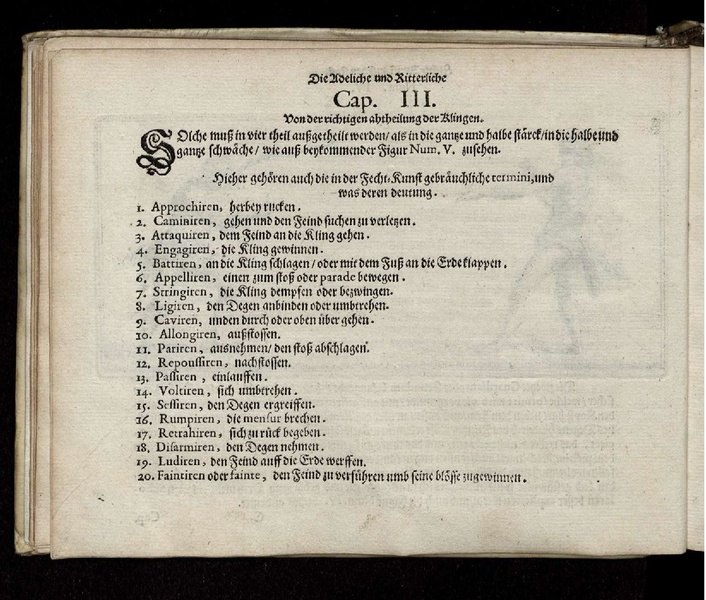 Die Adeliche und Ritterliche
Cap. III.
Von der richtigen abtheilung der Klingen.
SOlche muß in vier theil außgetheilt werden/ als in die gantze und halbe stärck/ in die halbe und
gantze schwäche/ wie auß beykommender Figur Num. V. zusehen.
Hieher gehören auch die in der Fecht-Kunst gebräuchliche termini, und
was deren deutung.
1. Approchiren, herbey rucken.
2. Caminiren, gehen und den Feind suchen zu verletzen.
3. Attaquiren, dem Feind an die Kling gehen.
4. Engagiren, die Kling gewinnen.
5. Battiren, an die Kling schlagen/ oder mit dem Fuß an die Erde klappen.
6. Appelliren, einen zum stoß oder parade bewegen.
7. Stringiren, die Kling dempfen oder bezwingen.
8. Ligiren, den Degen anbinden oder umbtrehen.
9. Caviren, unden durch oder oben über gehen.
10. Allongiren, außstossen.
11. Pariren, ausnehmen/ den stoß abschlagen.
12. Repoussiren, nachstossen.
13. Passiren, einlauffen.
14. Voltiren, sich umbtrehen.
15. Sessiren, den Degen ergreiffen.
16. Rumpiren, die mensur brechen.
17. Retrahiren, sich zu rück begeben.
18. Disarmiren, den Degen nehmen.
19. Ludiren, den Feind auff die Erde werffen.
20. Faintiren oder fainte, den Feind zu verführen umb seine blösse zugewinnen.